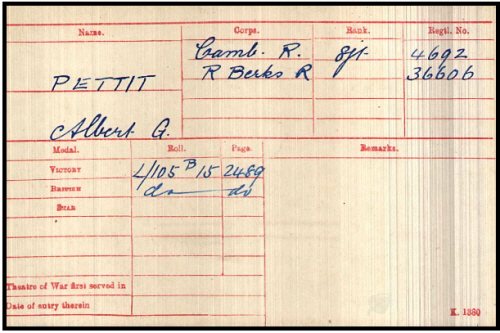 Name. Corps. Rank. Regtl. No.
Camb. R. Sjt 4692
PETTIT R Berks R 36606
Albert G.
Medal. Roll. Page. Remarks.
VICTORY L/105 B 15 2489
BRITISH do do
STAR
Theatre of War first served in
Date of entry therein
K. 1380